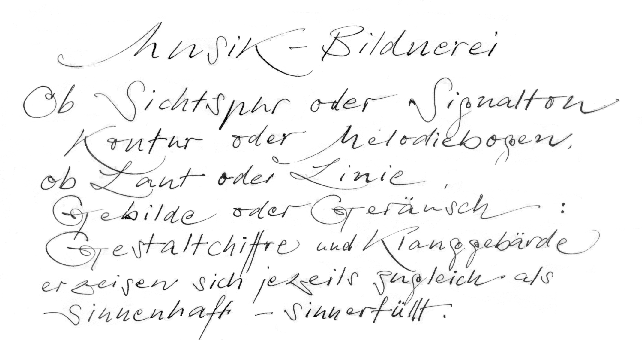 Musik-Bildnerei
Ob Sichtspur oder Signalton
Kontur oder Melodiebogen,
ob Laut oder Linie,
Gebilde oder Geräusch :
Gestaltchiffre und Klanggebärde
erzeigen sich jeweils zugleich als
sinnenhaft - sinnerfüllt.